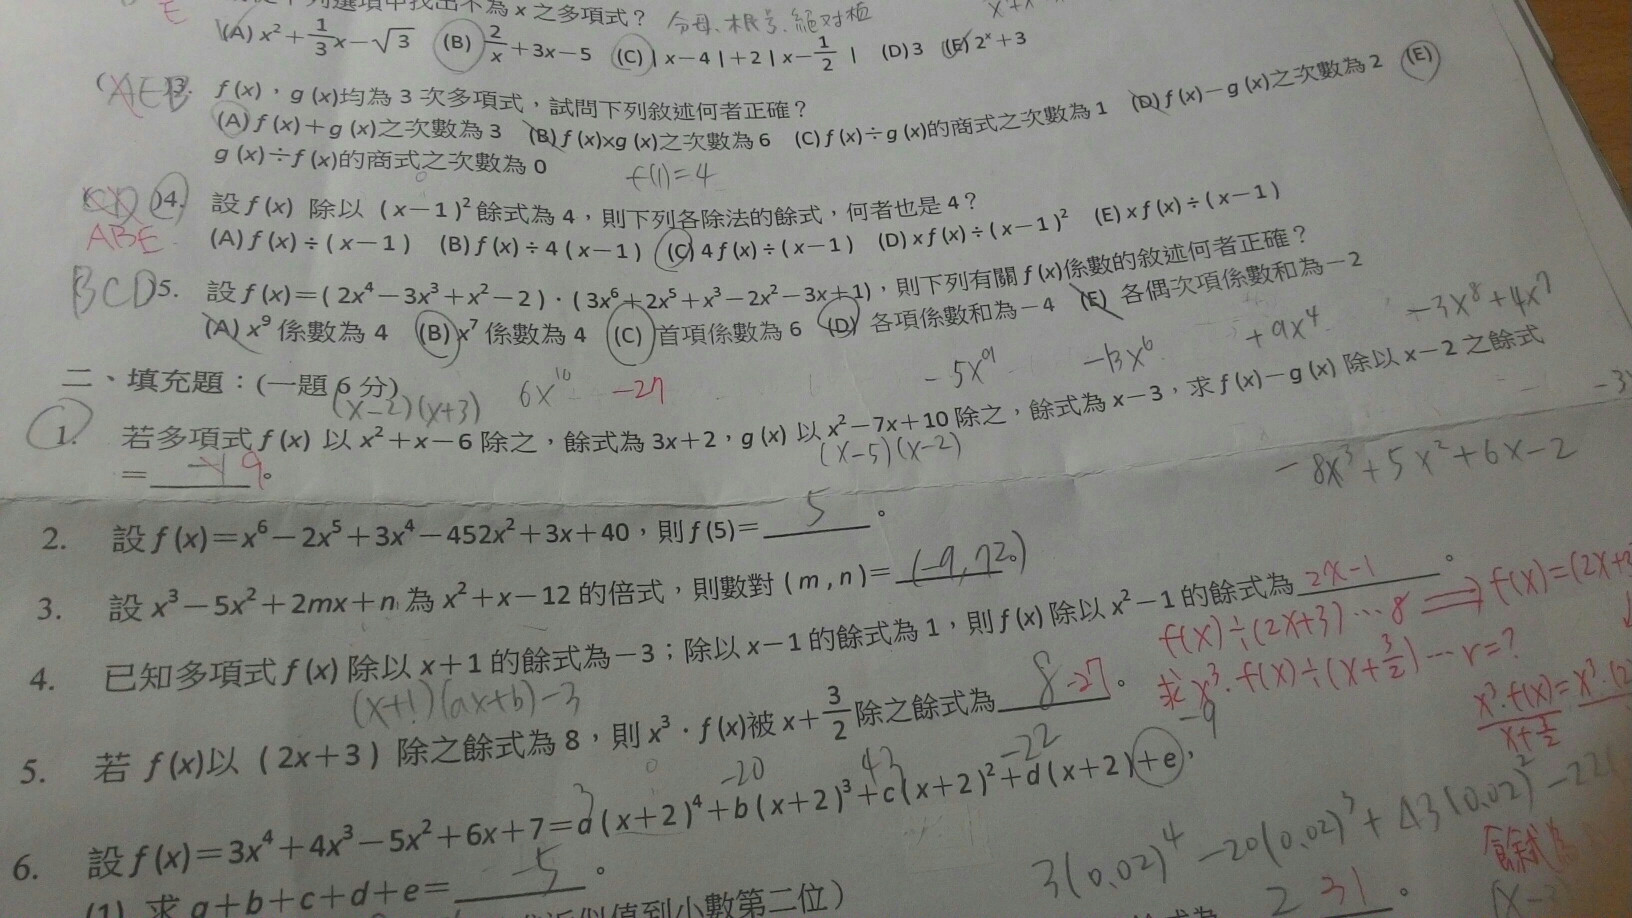 下列選項中找出不為 x 之多項式？ 分母、根号、絕对值
E
(A) x²+1/3x−√3 (B) 2/x+3x−5 (C)｜x−4｜+2｜x−1/2｜ (D) 3 (E) 2ˣ+3
AEB 3. f (x)，g (x)均為 3 次多項式，試問下列敘述何者正確？
(A) f (x)+g (x)之次數為 3 (B) f (x)×g (x)之次數為 6 (C) f (x)÷g (x)的商式之次數為 1 (D) f (x)−g (x)之次數為 2 (E)
g (x)÷f (x)的商式之次數為 0
f(1)=4
4. 設 f (x) 除以 (x−1)² 餘式為 4，則下列各除法的餘式，何者也是 4？
ABE
(A) f (x)÷(x−1) (B) f (x)÷4(x−1) (C) 4 f (x)÷(x−1) (D) x f (x)÷(x−1)² (E) x f (x)÷(x−1)
BCD 5. 設 f (x)=(2x⁴−3x³+x²−2)·(3x⁶+2x⁵+x³−2x²−3x+1)，則下列有關 f (x)係數的敘述何者正確？
(A) x⁹ 係數為 4 (B) x⁷ 係數為 4 (C) 首項係數為 6 (D) 各項係數和為−4 (E) 各偶次項係數和為−2
6x¹⁰ −27 −5x⁹ −13x⁶ +9x⁴ −3x⁸+4x⁷
二、填充題：(一題 6 分)
(x−2)(x+3)
1. 若多項式 f (x) 以 x²+x−6 除之，餘式為 3x+2，g (x) 以 x²−7x+10 除之，餘式為 x−3，求 f (x)−g (x) 除以 x−2 之餘式
(x−5)(x−2)
= 9 。
−8x³+5x²+6x−2
2. 設 f (x)=x⁶−2x⁵+3x⁴−452x²+3x+40，則 f (5)= 5 。
3. 設 x³−5x²+2mx+n 為 x²+x−12 的倍式，則數對 (m , n)= (−9, 72)。
4. 已知多項式 f (x) 除以 x+1 的餘式為−3；除以 x−1 的餘式為 1，則 f (x) 除以 x²−1 的餘式為 2x−1 。
(x+1)(ax+b)−3
f(x)÷(2x+3)…8 ⟹ f(x)=(2x+3
求 x³·f(x)÷(x+3/2)…r=?
5. 若 f(x)以 (2x+3) 除之餘式為 8，則 x³·f (x)被 x+3/2 除之餘式為 8 −27 。
3 −20 43 −22 −9
6. 設 f (x)=3x⁴+4x³−5x²+6x+7=a(x+2)⁴+b(x+2)³+c(x+2)²+d(x+2)+e，
3(0.02)⁴−20(0.02)³+43(0.02)²−22(
(1) 求 a+b+c+d+e= −5 。
近似值到小數第二位)
餘式為
2 31 。